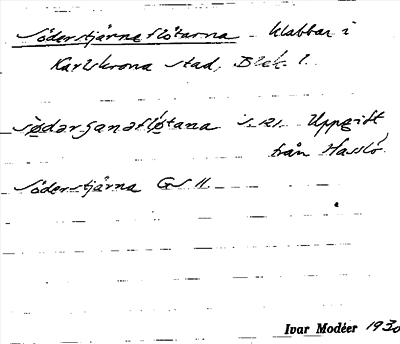 Söderstjärnaflötarna Klabbar i
Karlskrona stad, Blek. l.
Sødarʃanafløtana S. 121. Uppgift
från Hasslö
Söderstjärna GS 11.
Ivar Modéer 1930